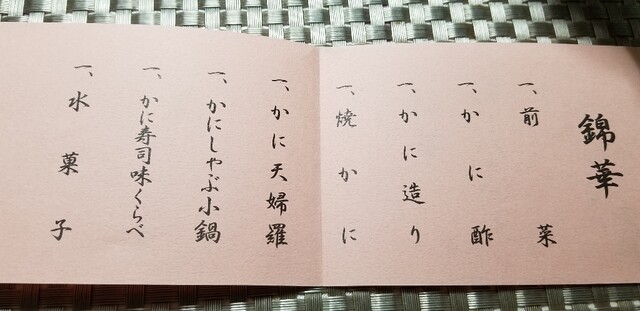 錦華
一、前菜
一、かに酢
一、かに造り
一、焼かに
一、かに天婦羅
一、かにしゃぶ小鍋
一、かに寿司味くらべ
一、水菓子